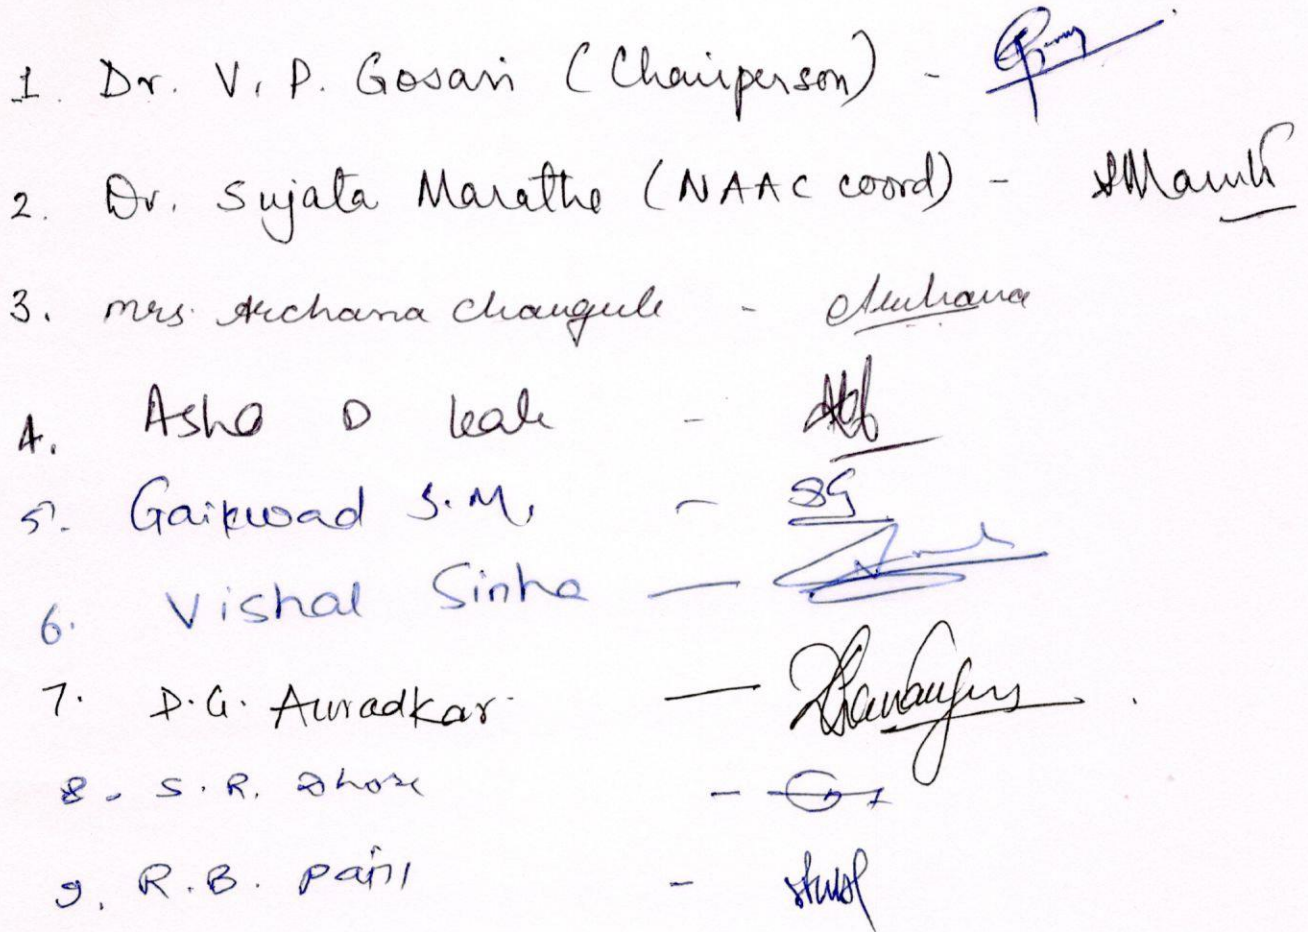 1. Dr. V. P. Gosavi (Chairperson) -
2. Dr. Sujata Marathe (NAAC coord) -
3. mrs. Archana Chaugule - Archana
4. Asha D Kale -
5. Gaikwad S.M. - SG
6. Vishal Sinha —
7. D.G. Auradkar —
8. S.R. Dhore -
9. R.B. Patil -